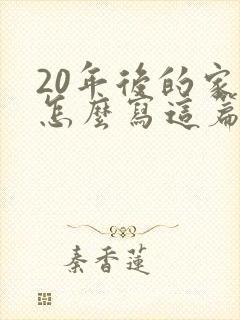 20年後的家
怎麼寫這篇
秦香蓮